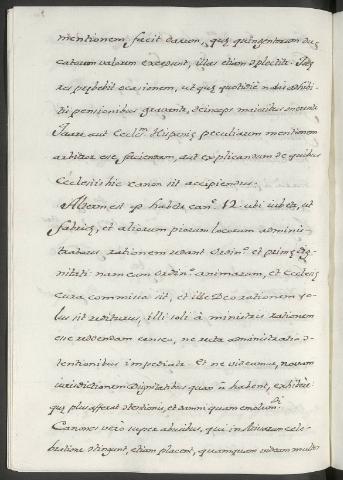 mentionem facit earum, quę quingentorum du
catorum valorem excedunt, illas etiam
res prębebit occasionem, ut quę quotidie
tis pensionibus gravantur, deinceps maioribus
Quare aut Eccles. Hispanię peculiarem mentionem
arbitror esse faciendam, aut explicandum de quibus
Ecclesiis hic canon sit accipiendus.
Alterum est quod habetur can. 12. ubi iubetur, ut
fabricę, et aliorum piorum locorum adminis-
tratores rationem reddant Ordin. et primę dig-
nitati nam cum Ordin. animarum, et Ecclesię
cura commissa sit, et ille Deo rationem so-
lus sit rediturus, illi soli à ministris rationem
esse reddendam censeo, ne recta administratio
tentionibus impediatur. Et ne videamur, novam
iurisdictionem dignitatibus quam non habent, exhibere
quę plus afferat et damni quam emolumti
Canones verò super abusibus, qui in Missarum cele-
bratione contingunt, etiam placent, quamquam